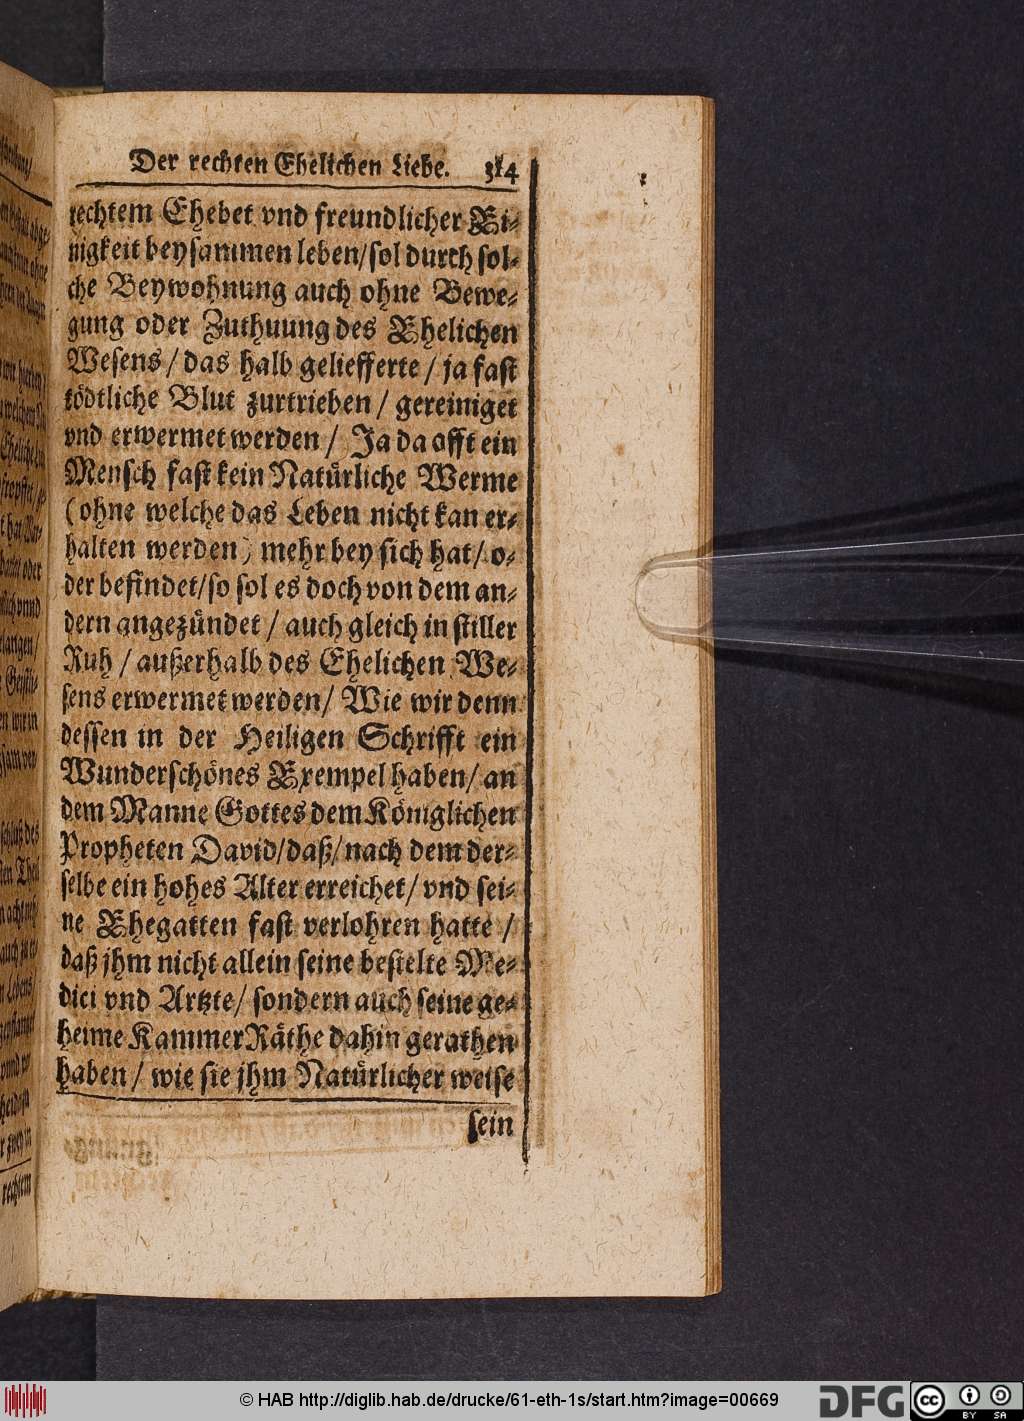 Der rechten Ehelichen Liebe. 314
rechtem Ehebet vnd freundlicher Ei-
nigkeit beysammen leben/sol durch sol-
che Beywohnung auch ohne Bewe-
gung oder Zuthuung des Ehelichen
Wesens / das halb geliefferte / ja fast
tödtliche Blut zurtrieben / gereiniget
vnd erwermet werden / Ja da offt ein
Mensch fast kein Natürliche Werme
(ohne welche das Leben nicht kan er-
halten werden) mehr bey sich hat / o-
der befindet/so sol es doch von dem an-
dern angezündet / auch gleich in stiller
Ruh / außerhalb des Ehelichen We-
sens erwermet werden/ Wie wir denn
dessen in der Heiligen Schrifft ein
Wunderschönes Exempel haben/ an
dem Manne Gottes dem Königlichen
Propheten David/daß/nach dem der-
selbe ein hohes Alter erreichet/ vnd sei-
ne Ehegatten fast verlohren hatte /
daß jhm nicht allein seine bestelte Me-
dici vnd Artzte/ sondern auch seine ge-
heime KammerRäthe dahin gerathen
haben / wie sie jhm Natürlicher weise
sein
© HAB http://diglib.hab.de/drucke/61-eth-1s/start.htm?image=00669
DFG
cc BY SA